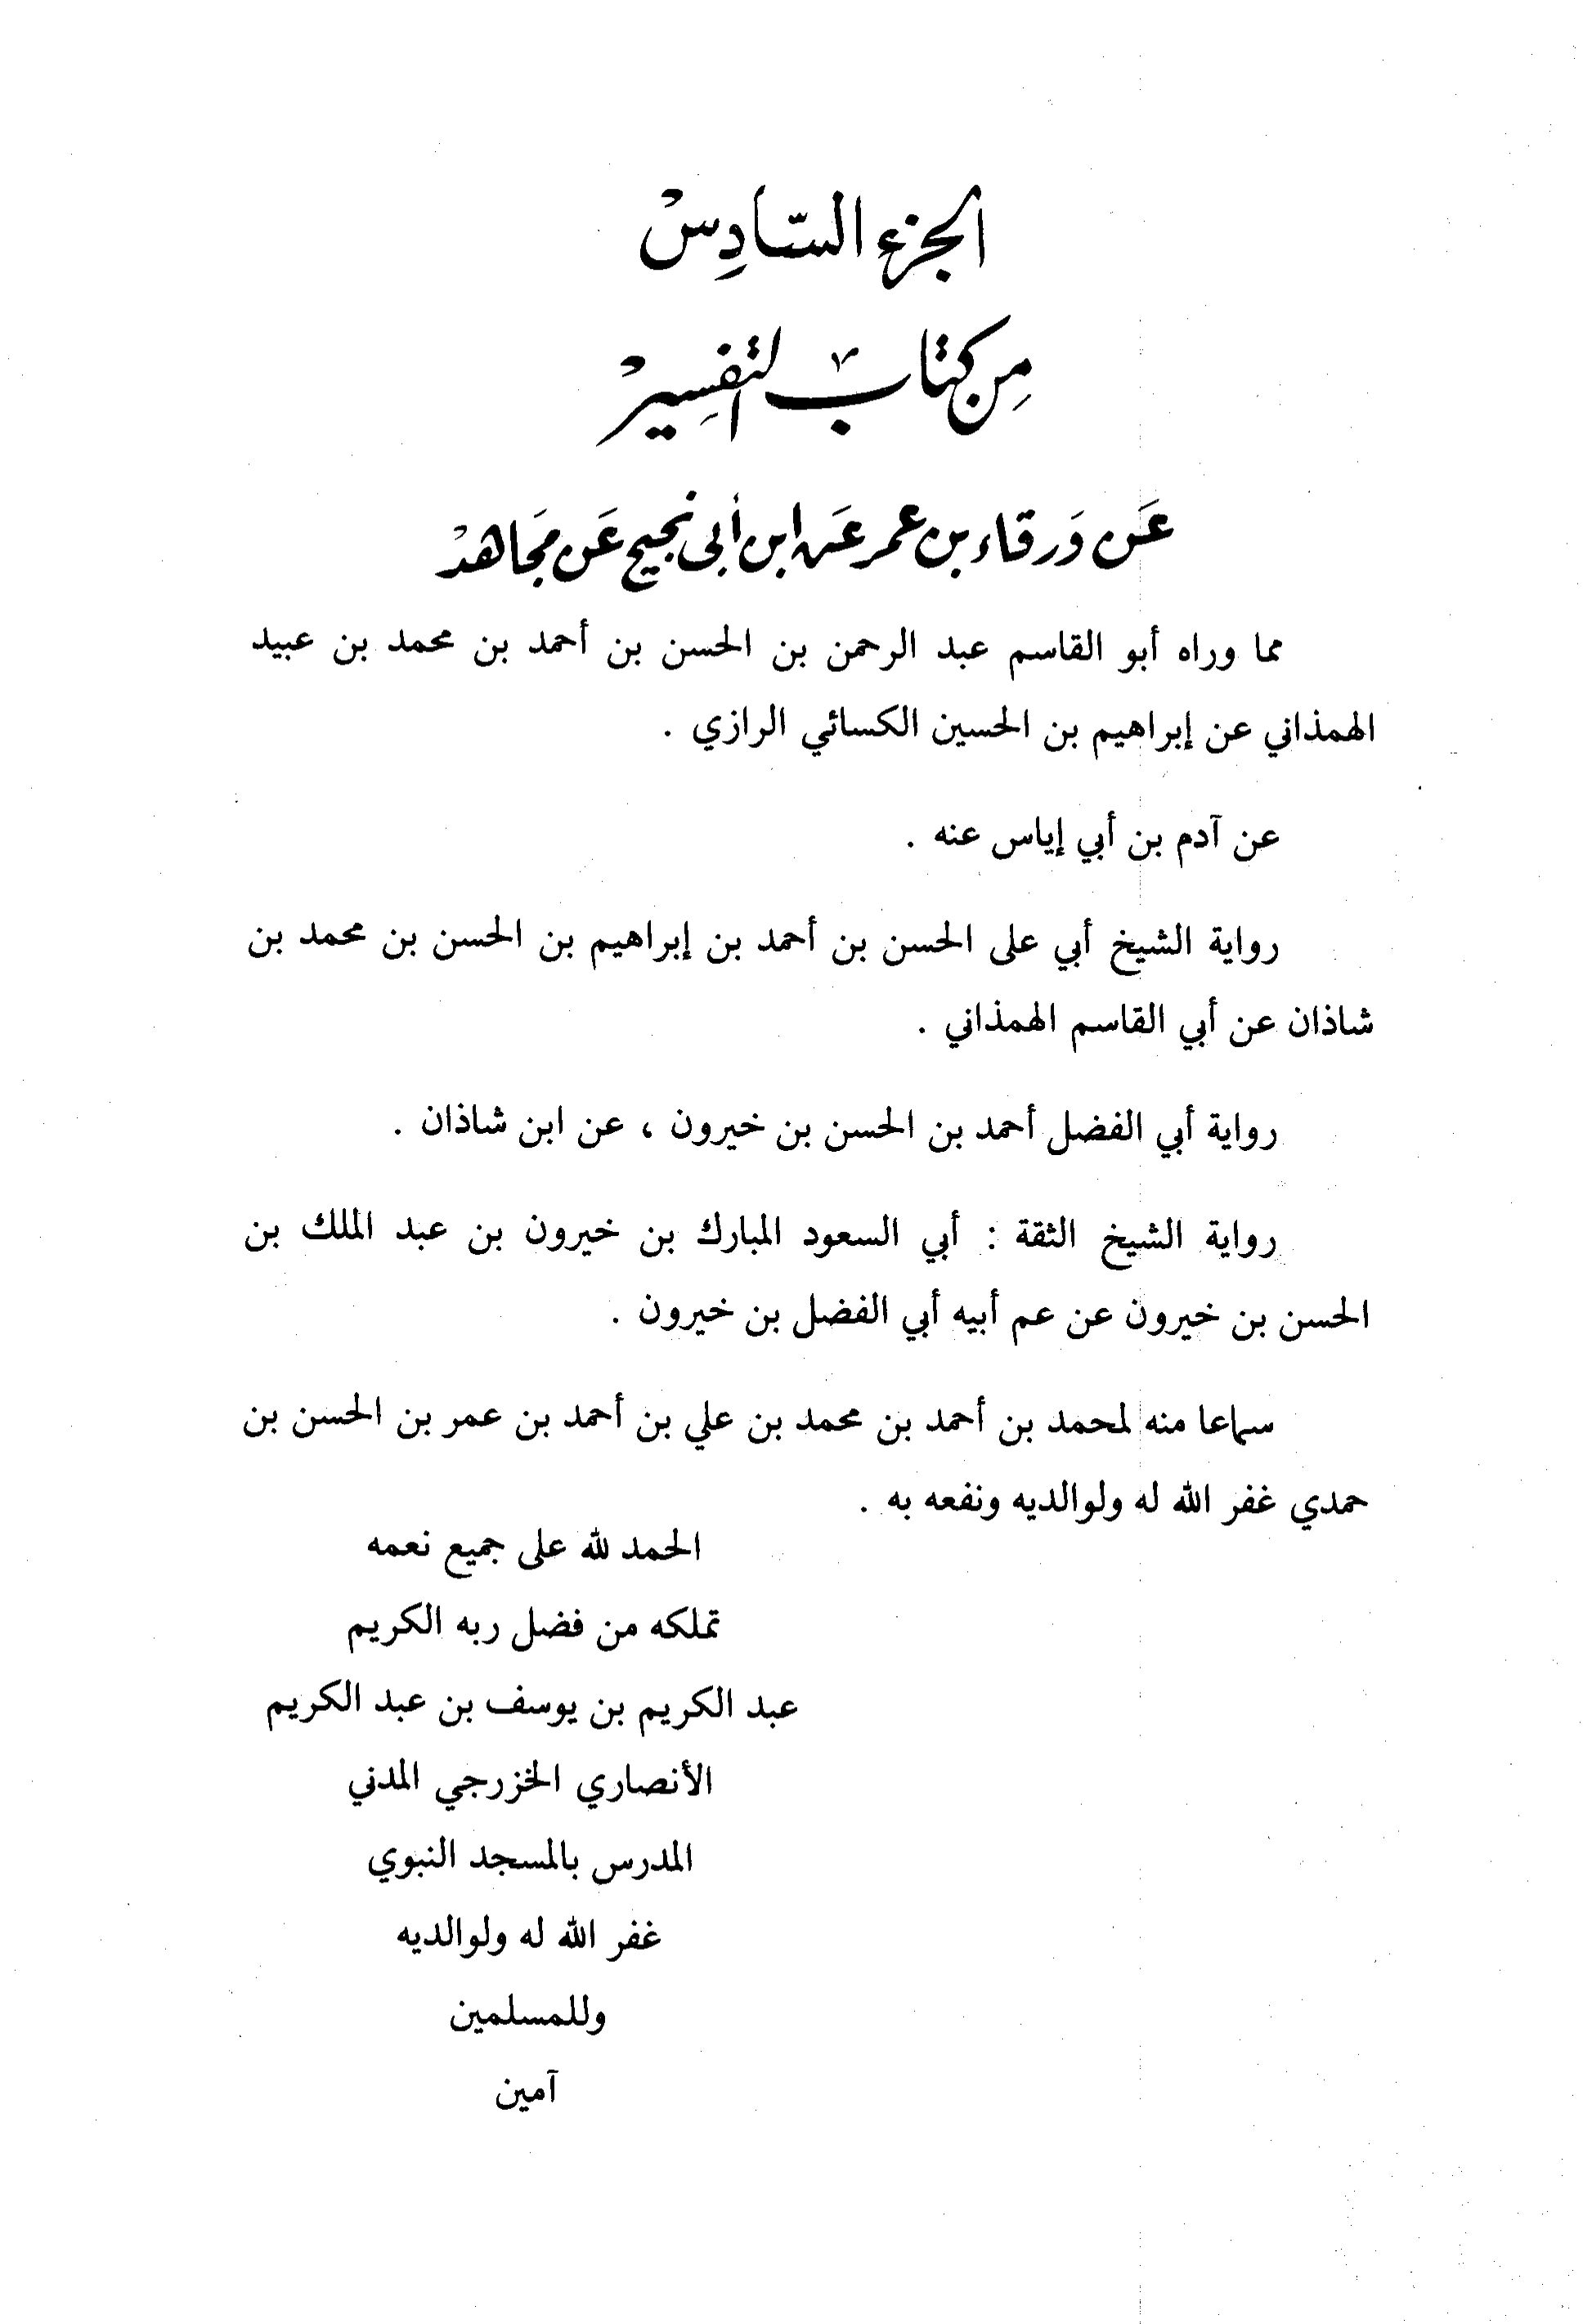 الجزء السّادِسْ
مِن كتاب التفسِير
عَن وَرقاء بن عمر عَن ابن أبي نجيح عَن مجَاهدْ
مما وراه أبو القاسم عبد الرحمن بن الحسن بن أحمد بن محمد بن عبيد
الهمذاني عن إبراهيم بن الحسين الكسائي الرازي .
عن آدم بن أبي إياس عنه .
رواية الشيخ أبي على الحسن بن أحمد بن إبراهيم بن الحسن بن محمد بن
شاذان عن أبي القاسم الهمذاني .
رواية أبي الفضل أحمد بن الحسن بن خيرون ، عن ابن شاذان .
رواية الشيخ الثقة : أبي السعود المبارك بن خيرون بن عبد الملك بن
الحسن بن خيرون عن عم أبيه أبي الفضل بن خيرون .
سماعا منه لمحمد بن أحمد بن محمد بن علي بن أحمد بن عمر بن الحسن بن
حمدي غفر الله له ولوالديه ونفعه به .
الحمد لله على جميع نعمه
تملكه من فضل ربه الكريم
عبد الكريم بن يوسف بن عبد الكريم
الأنصاري الخزرجي المدني
المدرس بالمسجد النبوي
غفر الله له ولوالديه
وللمسلمين
آمين